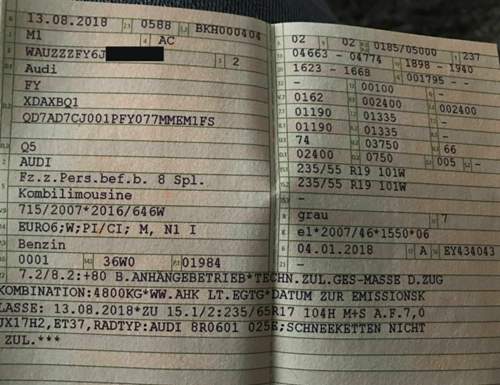 13.08.2018 0588 BKH000404
M1 AC
WAUZZZFY6J 2
Audi
FY
XDAXBQ1
QD7AD7CJ001PFY077MMEM1FS
Q5
AUDI
Fz.z.Pers.bef.b. 8 Spl.
Kombilimousine
715/2007*2016/646W
EURO6;W;PI/CI; M, N1 I
Benzin
0001 36W0 01984
02 02 0185/05000 237
04663 - 04774 1898 - 1940
1623 - 1668 001795 --
- 00100 -
0162 002400 002400
01190 01335 -
01190 01335 -
74 03750 66
02400 0750 005 -
235/55 R19 101W
235/55 R19 101W
-
grau 7
e1*2007/46*1550*06
04.01.2018 A EY434043
-
7.2/8.2:+80 B.ANHÄNGEBETRIEB*TECHN.ZUL.GES-MASSE D.ZUG
KOMBINATION:4800KG*WW.AHK LT.EGTG*DATUM ZUR EMISSIONSK
LASSE: 13.08.2018*ZU 15.1/2:235/65R17 104H M+S A.F.7,0
JX17H2,ET37,RADTYP:AUDI 8R0601 025E;SCHNEEKETTEN NICHT
ZUL.***